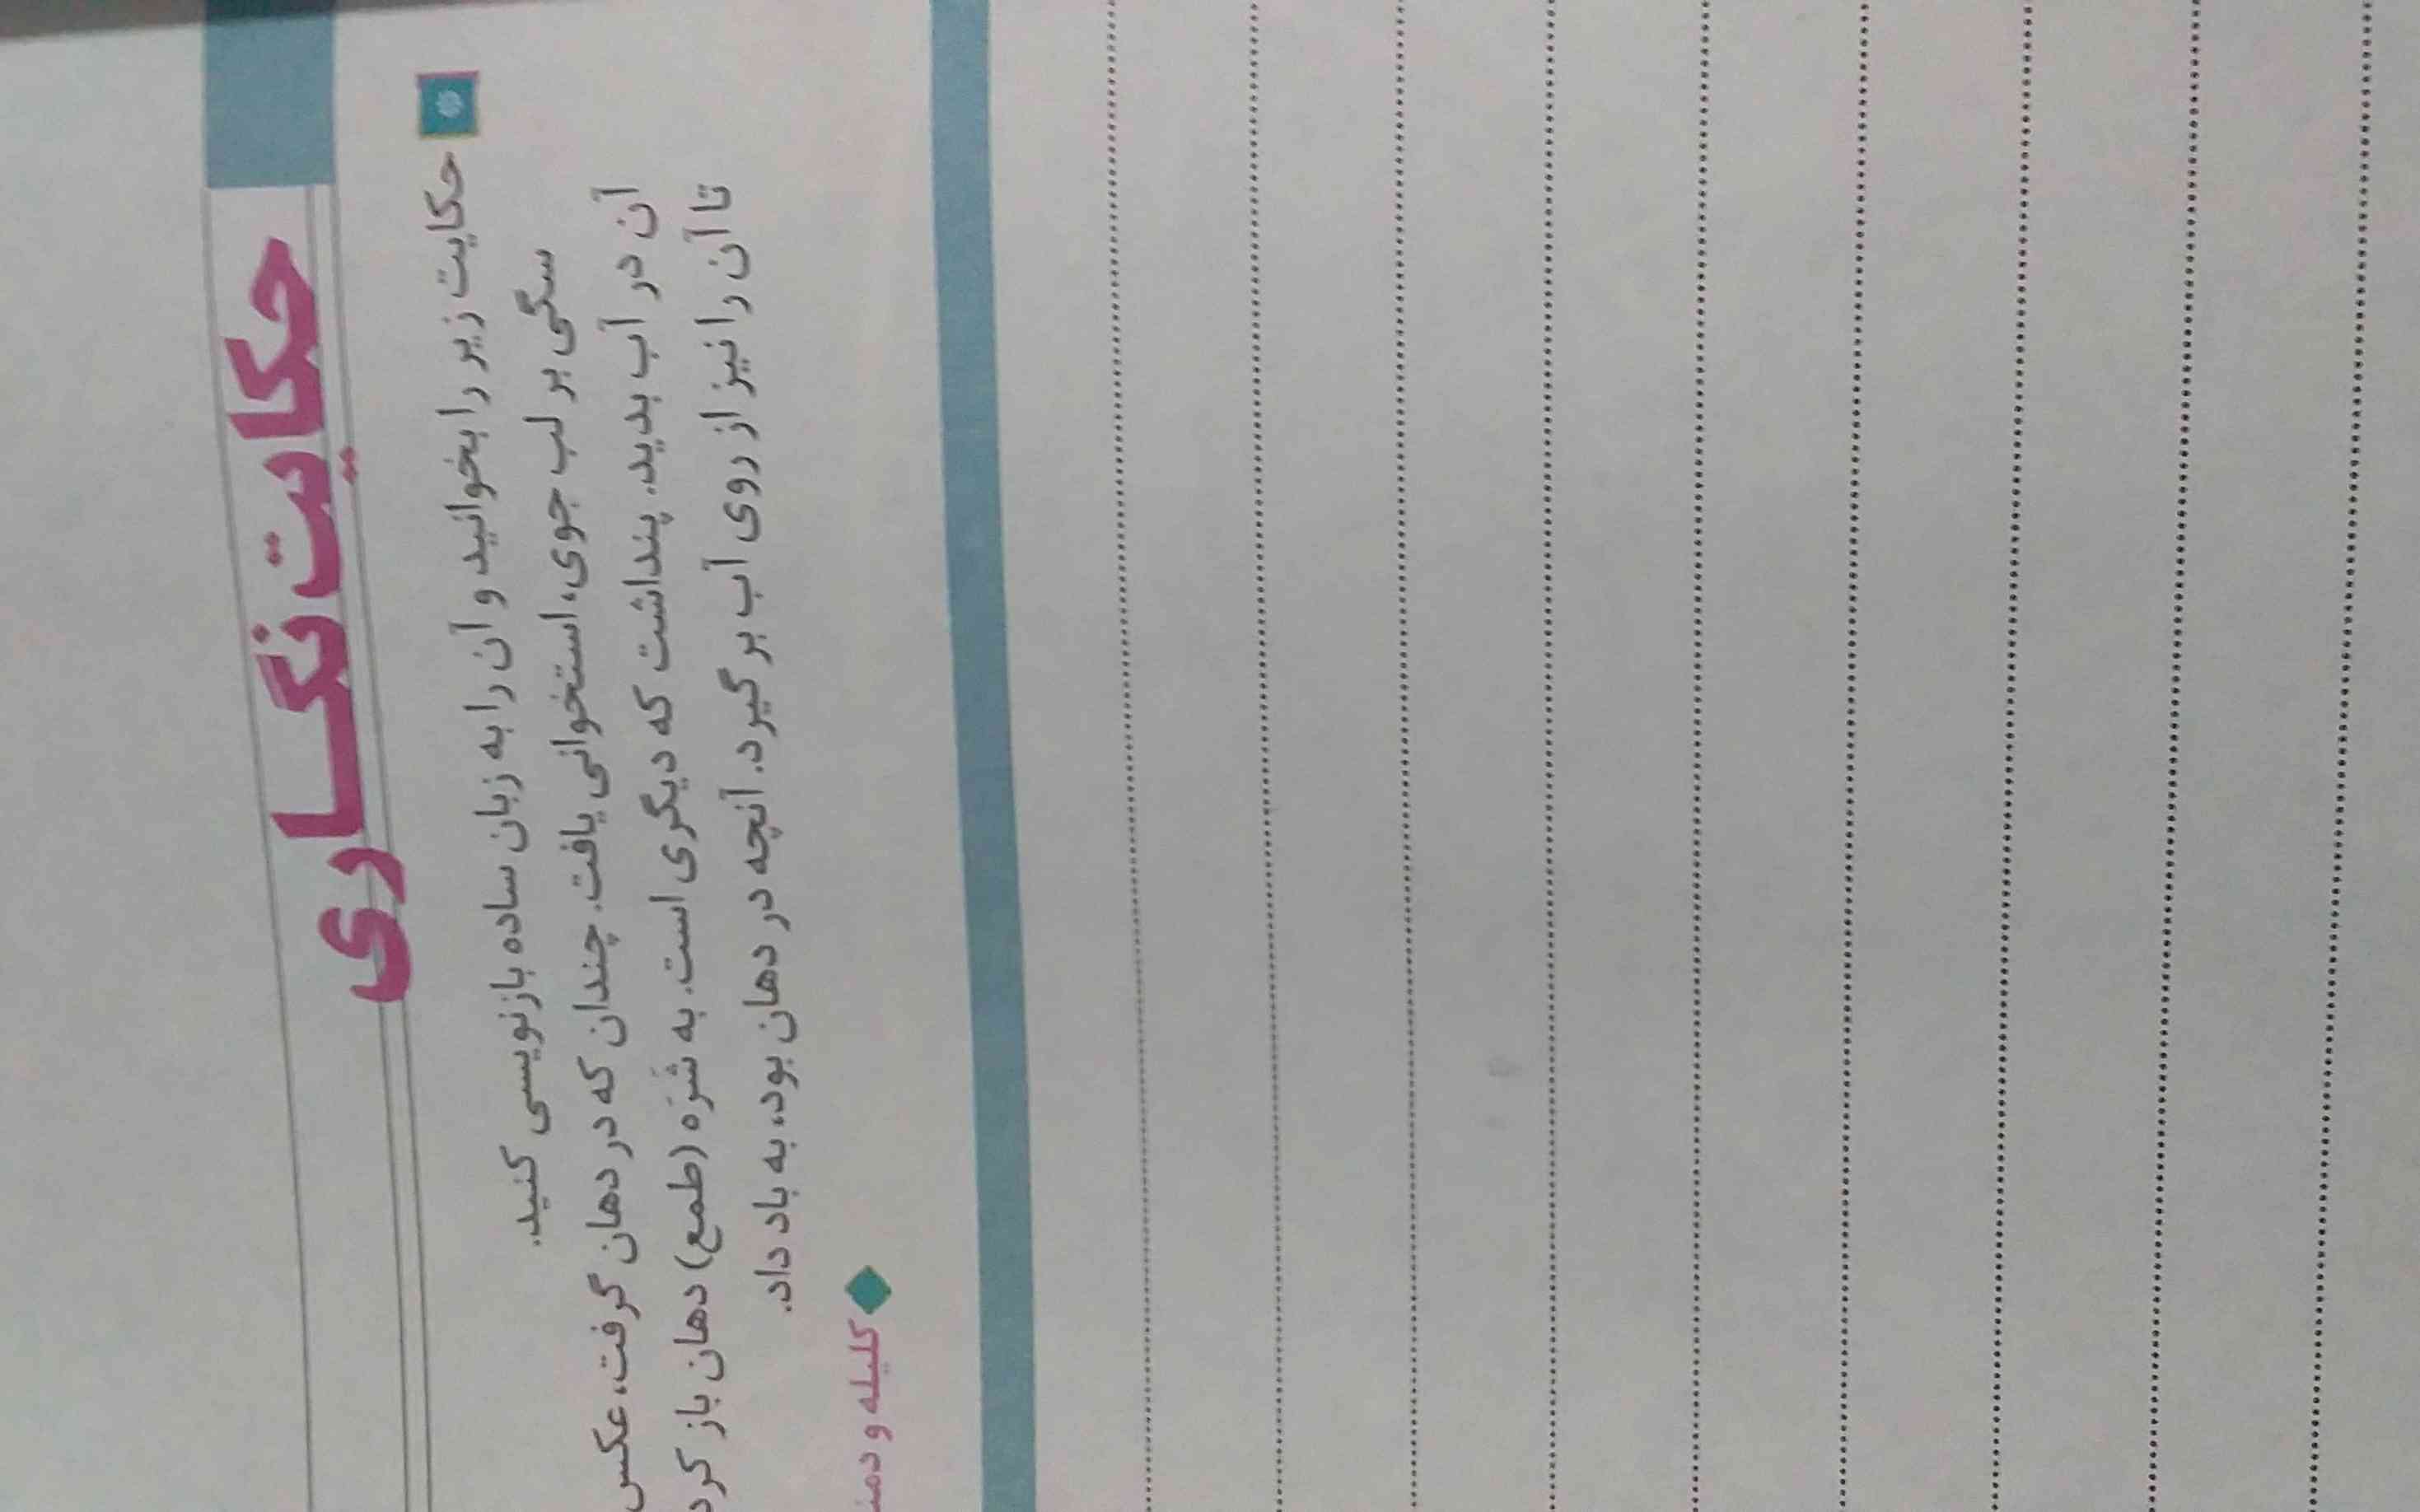 حکایت نگاری
حکایت زیر را بخوانید و آن را به زبان ساده بازنویسی کنید.
سگی بر لب جوی، استخوانی یافت. چندان که در دهان گرفت، عکس
آن در آب بدید. پنداشت که دیگری است. به شَرَه (طمع) دهان باز کرد
تا آن را نیز از روی آب برگیرد. آنچه در دهان بود، به باد داد.
کلیله و دمنه